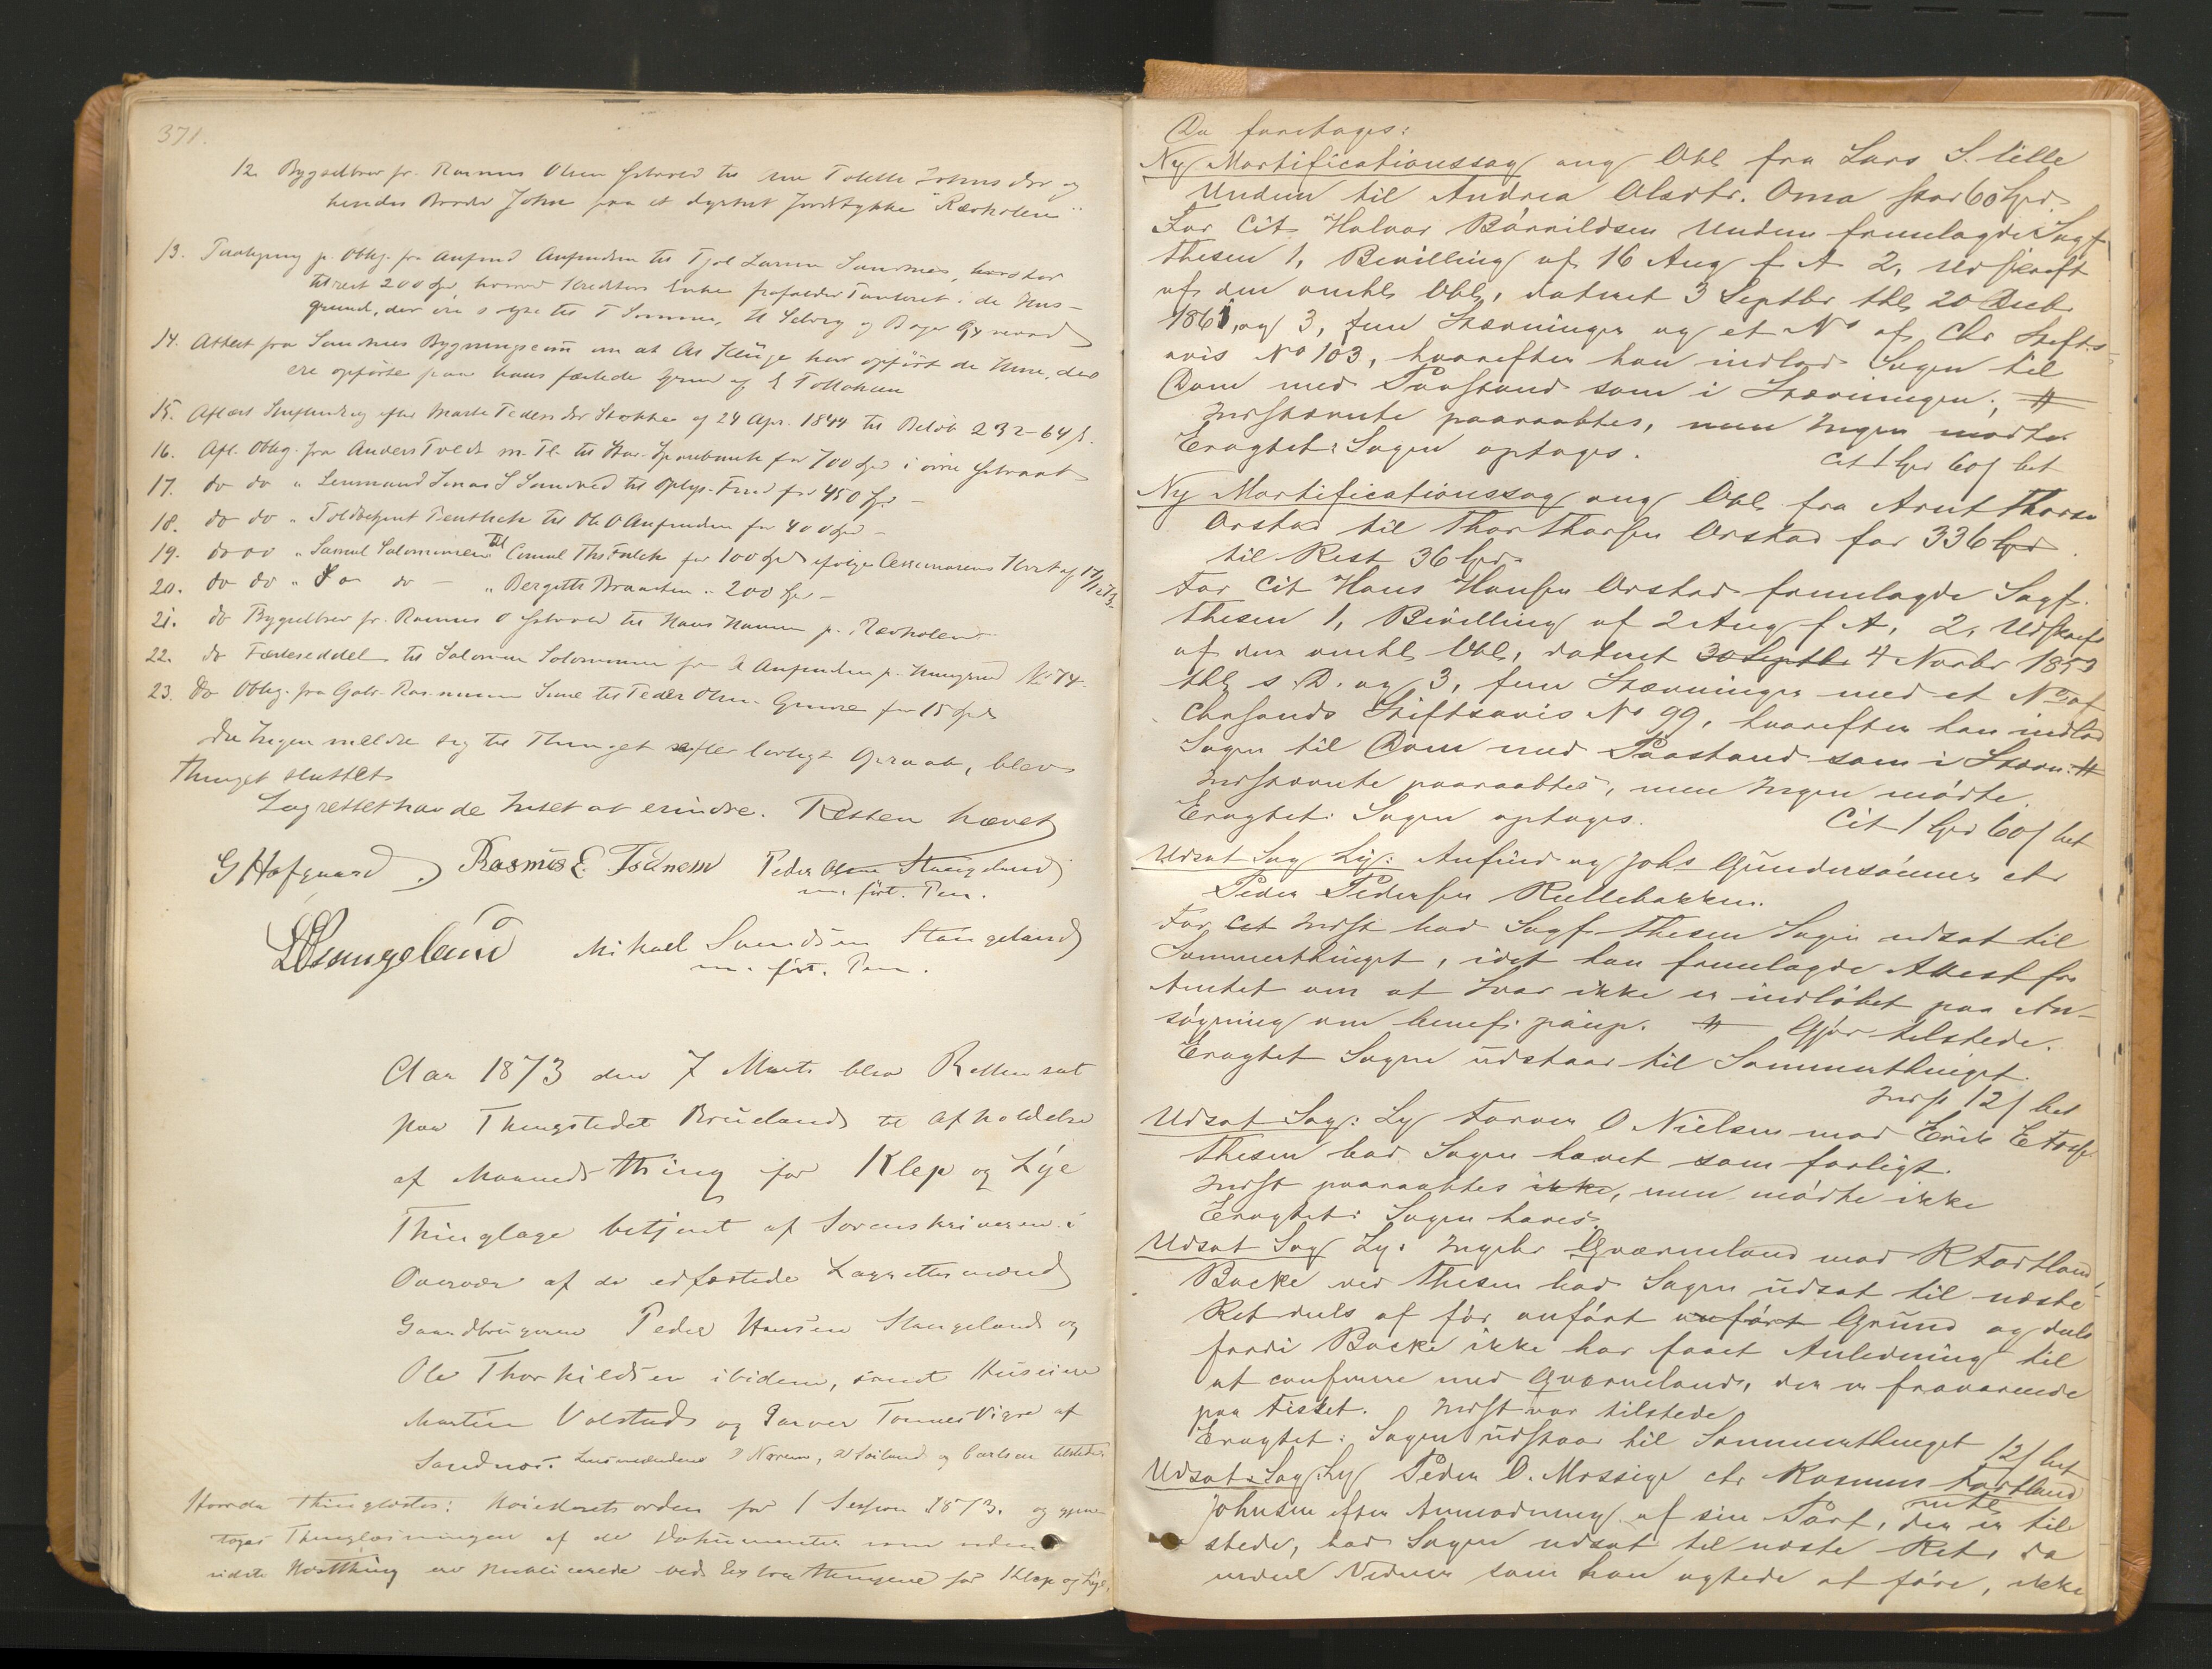 371.
12. Bygselbrev fr. Rasmus Olsen til Tolette Johns dtr og
hendes Broder John paa et dyrket Jordstykke "Rævholen"
13. Paategning p. Oblig. fra Anfind Anfindsen til Tjøl Larsen Sandnæs, hvorved
til rest 200 Spd, hvorved Kreditors Enke frafalder Panteret i de Huse
grund, der ere solgte til T Sømme, H Seberg og Gjerverad
14. Attest fra Sandnes Bygningscom om at As Kluge har opført de Huse, der
ere opførte paa hans fæstede Grund af E Tollaksen
15. Aflæst Skiftudlæg efter Marte Peders dtr Stokke af 24 Apr. 1844 til Beløb 232-64 ß.
16. Afl. Oblig. fra Anders Tveds m. Fl. til Stav. Sparebank for 700 Spd
17. do do " Lensmand Jonas S Sandved til Oplys. Fond for 450 Spd. -
18. do do " Toldbetjent Benthek til Ole O Anfindsen for 400 Spd -
19. do do " Samuel Salomonsen til Consul Ths Falck for 100 Spd ifølge af 17/1 1873.
20. do do " S do - " Bergitte Braaten " 200 Spd -
21. do Bygselbrev fr. Rasmus O til Hans Hansen p. "Rævholen"
22. do Fæsteseddel til Salomon Solomonsen fra A Anfindsen p. Husgrund No 74.
23. do Oblig. fra Gabr. Rasmussen Sune til Peder Olsen Grurse for 15 Spd
Da Ingen meldte sig til Thinget efter lovligt Opraab, blev
Thinget sluttet
Lagrettet havde Intet at erindre. Retten hævet
G Hofgaard Rasmus E. Tednem Peder Olsen Stangeland
m. ført. Pen.
LO Stangeland Mikael Svendsen Stangeland
m. ført. Pen.
Aar 1873 den 7 Marts blev Retten sat
paa Thingstedet Brueland til Afholdelse
af Maanedsthing for Klep og Lye
Thinglage betjent af Sorenskriveren i
Overvær af de edfæstede Lagrettesmænd
Gaardbrugerne Peder Hansen Stangeland og
Ole Thorkildsen ibidem, samt Huseier
Martin Volstad og Farver Tønnes Vigre af
Sandnæs. Lensmændene Nærem, Soiland og Carlsen tilstede
Hvorda thinglæstes: Høiesteretsorden for 1 Session 1873. og gjen-
toges Thinglæsningen af de Dokumenter som siden
sidste Høstthing ere publicerede ved Extrathingene for Klep og Lye,
Da foretages:
Ny Mortificationssag ang Obl fra Lars S. lille
Undem til Andrea Olsdtr. Oma stor 60 Spd.
For Cit Halvor Bårnildsen Undem fremlagde Sagf.
Thesen 1, Bevilling af 16 Aug f A 2, Udskrift
af den omhl Obl, dateret 3 Septbr thl 20 Decbr
1861, og 3, sin Stævninger og et No af Chr Stifts-
avis No 103, hvorefter han indlod Sagen til
Dom med Paastand som i Stævningen; #
Indstævnte paaraabtes, men Ingen mødte
Eragtet: Sagen optages.
Cit 1 Spd 60 ß bet
Ny Mortificationssag ang Obl fra Arnt Thorsn
Orstad til Thor Thorsen Orstad for 336 Spd.
til Rest 36 Spd.
For Cit Hans Hansen Orstad fremlagde Sagf.
Thesen 1, Bevilling af 2 Aug f A, 2, Udskrift
af den omhl Obl, dateret 30 Septbr 4 Novbr 1853
thl s. D. og 3, sin Stævninger med et No af
Chrsands Stiftsavis No 99, hvorefter han indlod
Sagen til Dom med Paastand som i Stævn. #
Indstævnte paaraabtes, men Ingen mødte.
Eragtet: Sagen optages.
Cit 1 Spd 60 ß bet
Udsat Sag Ly: Anfind og Johs Gundersønner ctr
Peder Pedersen Rullebakken.
For Cit Indst bad Sagf. Thesen Sagen udsat til
Sommerthinget, idet han fremlagde Attest fra
Amtet om at Svar ikke er indløbet paa An-
søgning om benef. paup. # Gjør tilstede.
Eragtet Sagen udstaar til Sommerthinget.
Indst 12 ß bet
Udsat Sag: Ly Farver O Nielsen mod Erik E Fosse
Thesen bad Sagen hævet som forligt.
Indst paaraabtes ikke, men mødte ikke
Eragtet: Sagen hæves.
Udsat Sag Ly: Ingebr Qværneland mod R Fortland
Backe ved Thesen bad Sagen udsat til næste
Ret dels af før anført anført Grund og dels
fordi Backe ikke har faaet Anledning til
at conferere med Qværneland, der er fraværende
paa Fisket. Indst var tilstede
Eragtet: Sagen udstaar til Sommerthinget
12 ß bet
Udsat Sag: Ly Peder O. Mossige ctr Rasmus Fortland
Johnsen efter Anmodning af sin Part, der er til
stede, bad Sagen udsat til næste Ret, da
endeel Vidner som han agtede at føre, ikke